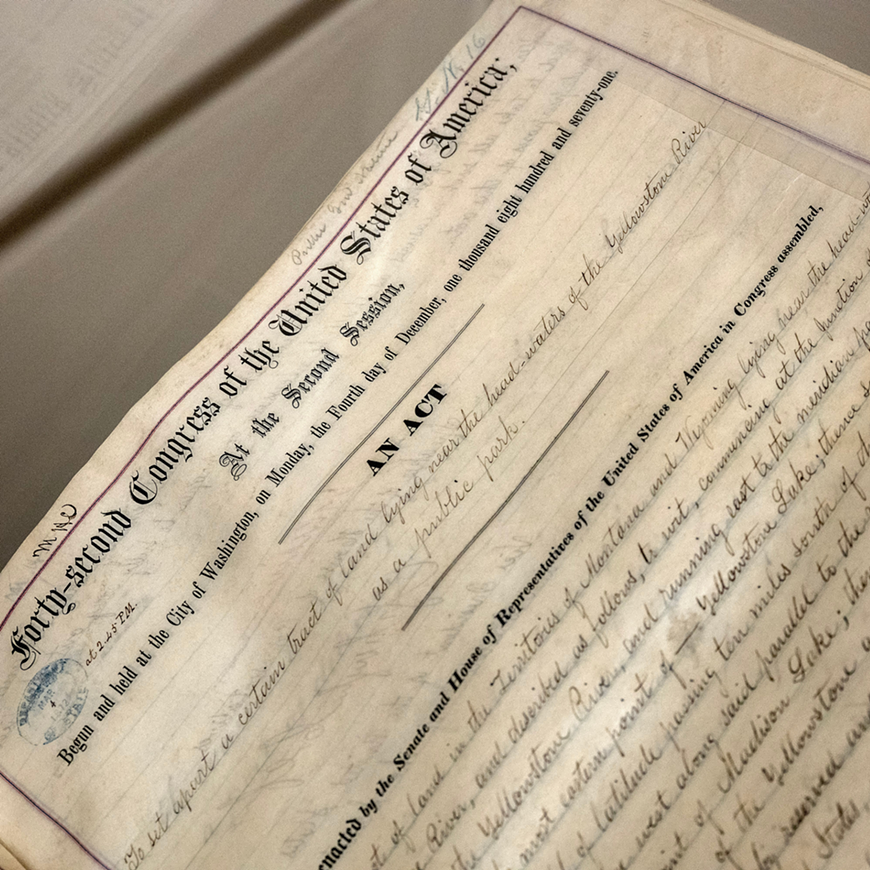 H.R. 16
Forty-second Congress of the United States of America;
At the Second Session,
at 2.45 P.M.
Begun and held at the City of Washington, on Monday, the Fourth day of December, one thousand eight hundred and seventy-one.
AN ACT
To set apart a certain tract of land lying near the head-waters of the Yellowstone River
as a public park.
enacted by the Senate and House of Representatives of the United States of America in Congress assembled,
of land in the Territories of Montana and Wyoming lying near the head-
River, and described as follows, to wit, commencing at the junction
the Yellowstone River, and running east to the meridian
most eastern point of Yellowstone Lake; thence
of latitude passing ten miles south of
west along said parallel to the
of Madison Lake;
of the Yellowstone
reserved and
States,